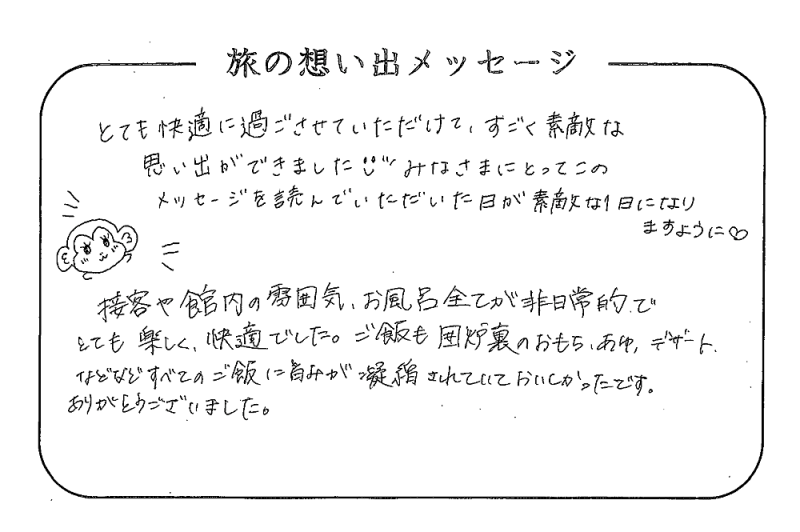 旅の想い出メッセージ
とても快適に過ごさせていただけて、すごく素敵な
思い出ができました みなさまにとってこの
メッセージを読んでいただいた日が素敵な1日になり
ますように♡
接客や館内の雰囲気、お風呂全てが非日常的で
とても楽しく、快適でした。ご飯も囲炉裏のおもち、あゆ、デザート、
などなどすべてのご飯に旨みが凝縮されていておいしかったです。
ありがとうございました。